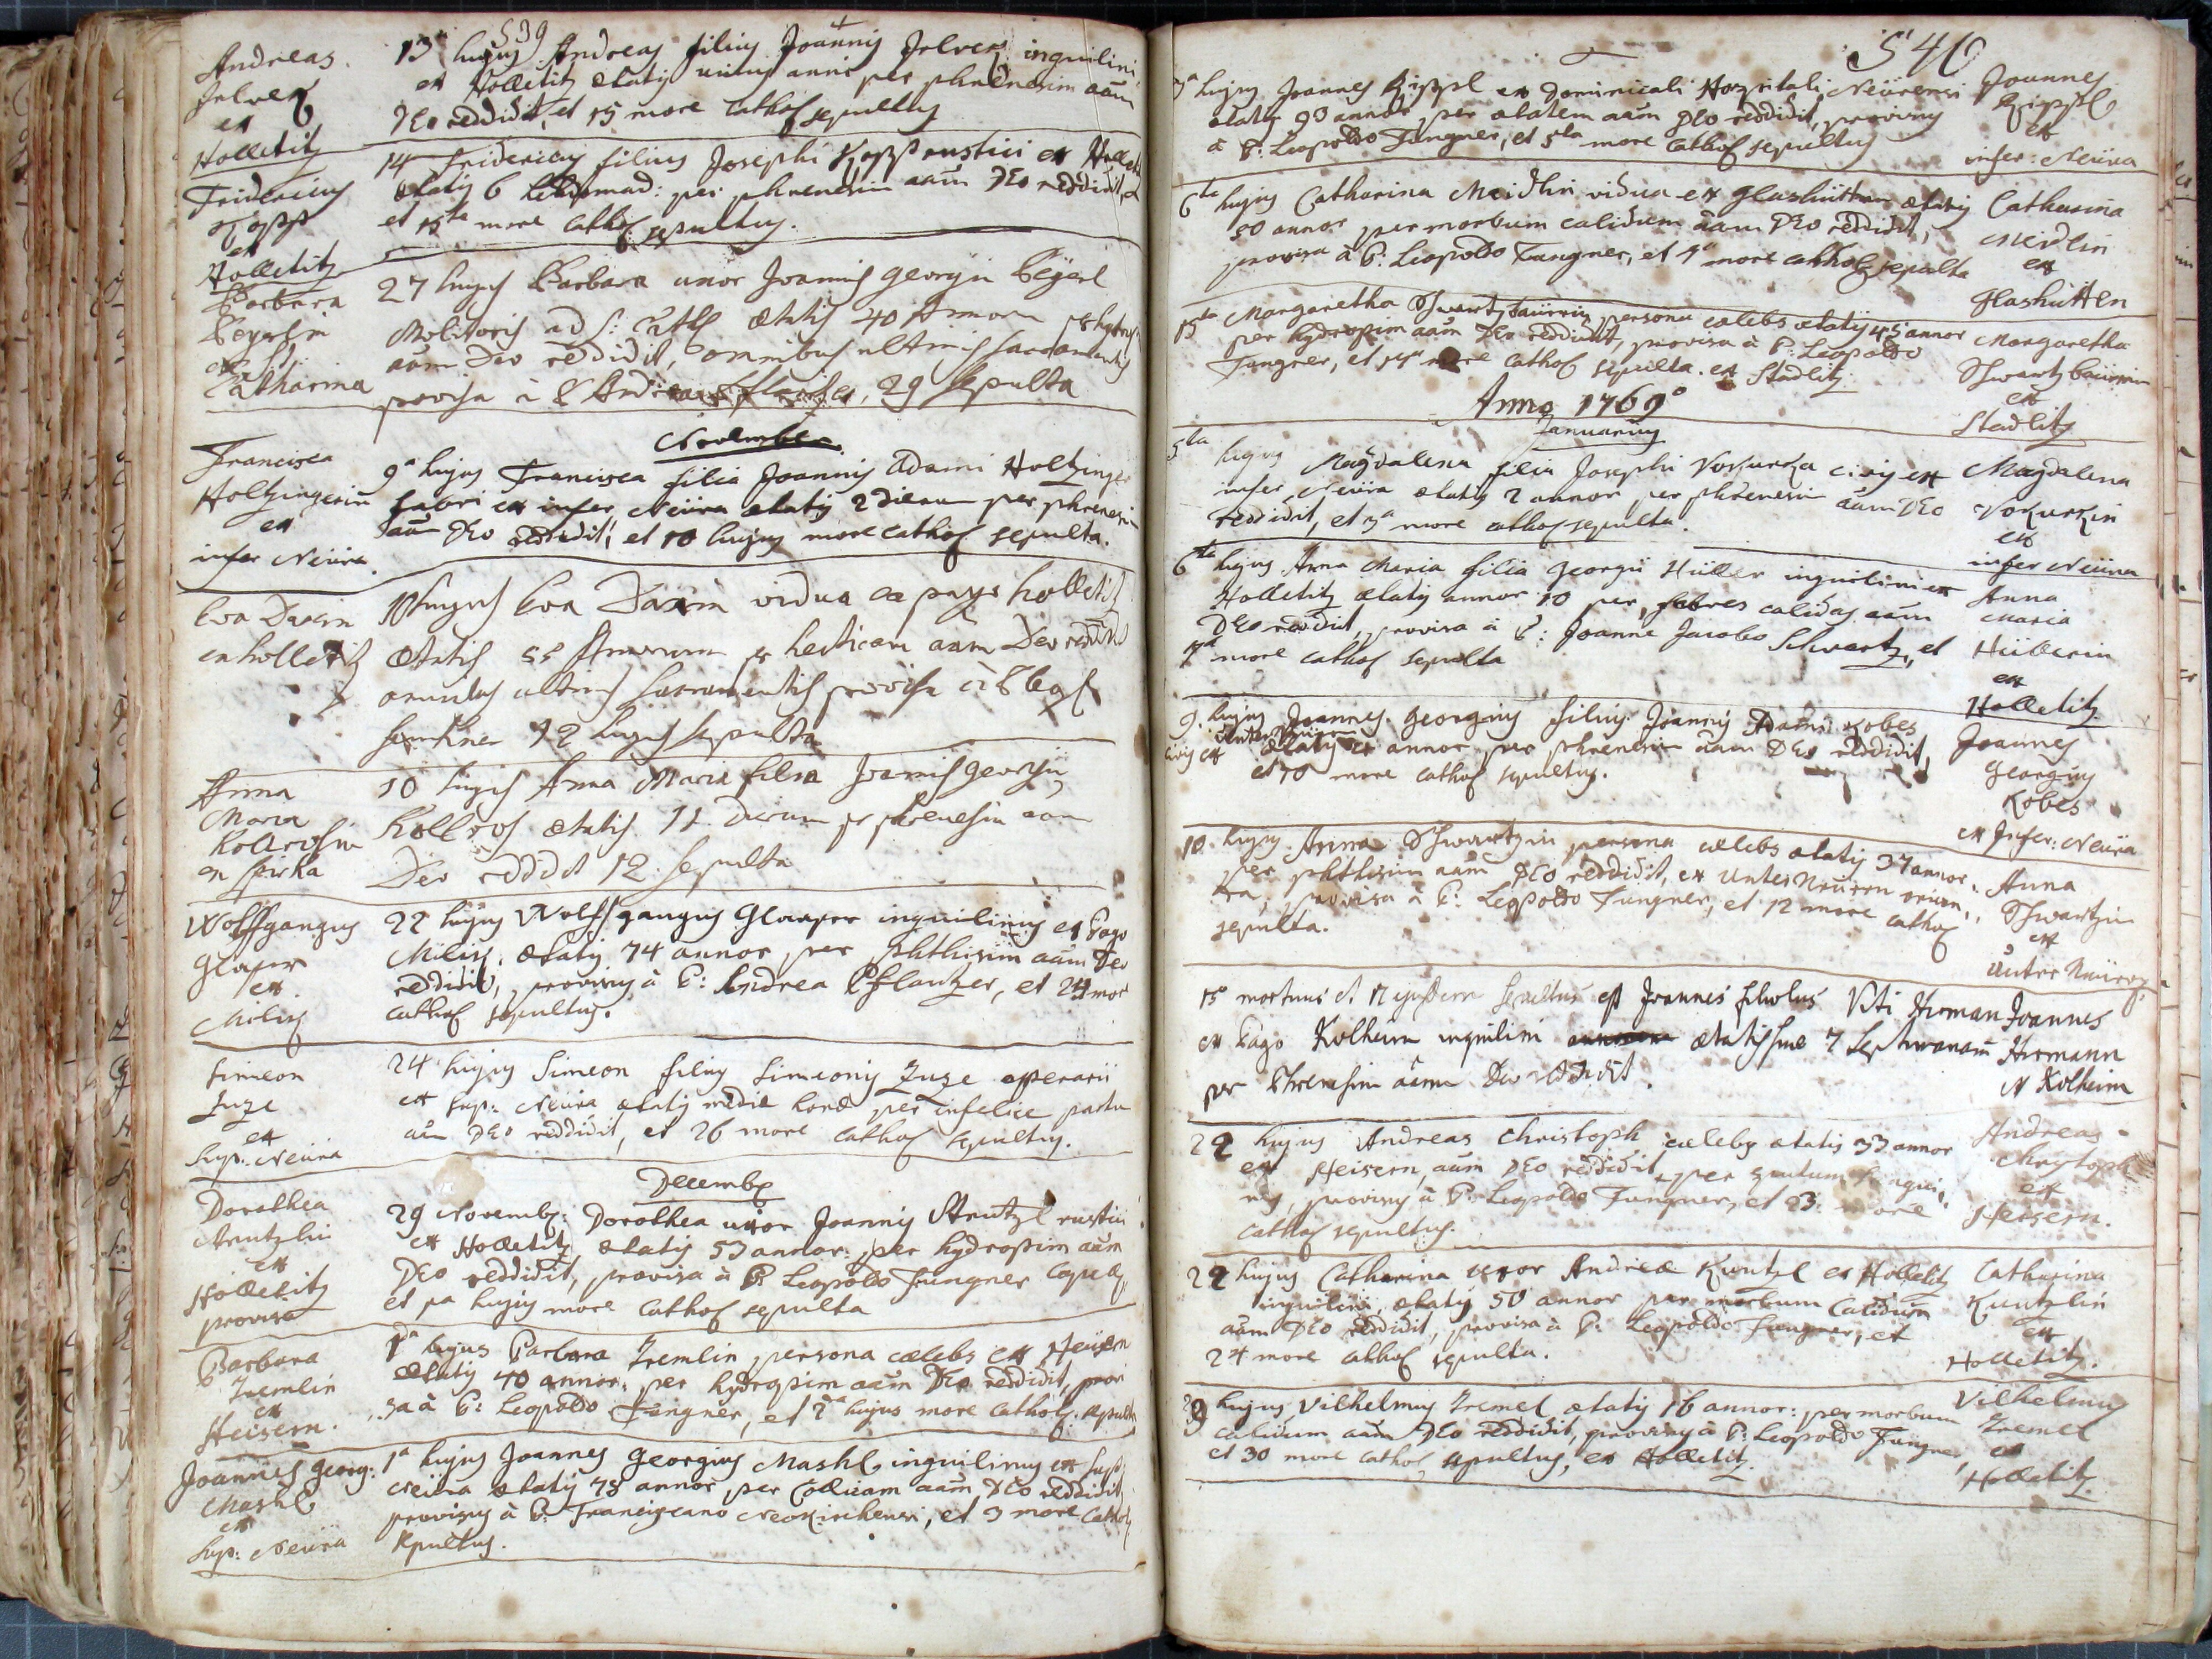 539
Andreas
ex
Holletitz
13 hujus Andreas filius Joannis inquilini
ex Holletitz ætatis unius anni per phrenesim aãm
DEo reddidit, et 15 more cathol sepultus
Fridericus
ex
Holletitz
14 Fridericus filius Josephi rustici ex
ætatis 6 hebdomad: per phrenesim aãm DEo reddidit,
et 15ta more cathol: sepultus.
Barbara
Beyerlin
ex S:
Catharina
27 hujus Barbara uxor Joannis Georgii Beyerl
Molitoris ad S: ætatis 40 Annorum
aãm Deo reddidit, omnibus ultimis sacramentis
provisa à P 29 sepulta
November
Francisca
Holtzingerin
ex
infer Neiira
9a hujus Francisca filia Joannis Adami Holtzinger
fabri ex infer Neiira ætatis 2 dierum per phrenesim
aãm DEo reddidit, et 10 hujus more cathol sepulta.
Eva
ex Holletitz
10 hujus Eva vidua ex pago Holletitz
Ætatis 55 Annorum per hecticam aãm Deo reddidit
omnibus ultimis sacramentis provisa à P
12 hujus sepulta
Anna
Maria
ex
10 hujus Anna Maria filia Joannis Georgii
ætatis 11 Dierum per phrenesin aam
Deo reddidit 12 sepulta
Wolffgangus
Glaser
ex
Milis
22 hujus Wolffgangus Glaser inquilinus ex Pago
Milis, ætatis 74 annor, per phthisim aãm Deo
reddidit, provisus à P: Andrea Pflantzer, et 24 mor
cathol sepultus.
Simeon
Zuze
ex
Sup: Neiira
24 hujus Simeon filius Simeonis Zuze operarii
ex Sup: Neiira ætatis mediæ horæ per infelice partu
aãm DEo reddidit, et 26 more cathol sepultus.
Decemb
Dorothea
ex
Holletitz
provisa
29 Novemb: Dorothea uxor Joannis rustici
ex Holletitz, ætatis 53 annor: per hydropsim aãm
DEo reddidit, provisa à P: Leopoldo Fungner
et 1a hujus more cathol sepulta
Barbara
Zremlin
ex
Heisern.
1a hujus Barbara Zremlin persona cælebs ex Heisern
ætatis 40 annor: per hydropsim aãm DEo reddidit, provi
sa à P: Leopoldo Fungner, et 2a hujus more cathol: sepulta
Joannes Georg:
Mashl
ex
Sup: Neiira
1a hujus Joannes Georgius Mashl inquilinus ex Sup:
Neiira ætatis 78 annor per colicam aãm DEo reddidit,
provisus à P: Franciscano Neokirchensi, et 3 more cathol
sepultus.
540
3a hujus Joannes ex Dominicali Hospitali Neiirensi
ætatis 93 annor, per ætatem aãm DEo reddidit, provisus
à P: Leopoldo Fungner, et 5ta more cathol sepultus
Joannes
ex
infer: Neiira
6ta hujus Catharina Meidlin vidua ex Glashütten ætatis
50 annor per morbum calidum aãm DEo reddidit,
provisa à P: Leopoldo Fungner, et 7a more cathol sepulta
Catharina
Meidlin
ex
Glashütten
15ta Margaretha persona cælebs ætatis 45 annor
per hydropsim aãm DEo reddidit, provisa à P: Leopoldo
Fungner, et 17a more cathol sepulta. ex Stadlitz
Margaretha
ex
Stadlitz
Anno 1769o
Januarius
5ta hujus Magdalena filia Josephi Vokurka civis ex
infer Neiira ætatis 2 annor per phrenesim aãm DEo
reddidit, et 7a more cathol sepulta.
Magdalena
Vokurkin
ex
infer Neiira
6ta hujus Anna Maria filia Georgii Hüller inquilini ex
Holletitz ætatis annor 10 per febres calidas aãm
DEo reddidit, provisa à P: Joanne Jacobo Schwartz, et
7a more cathol sepulta
Anna
Maria
Hüllerin
ex
Holletitz
9. hujus Joannes Georgius filius Joannis Adami Kobes
civis ex ætatis annor per phrenesim aãm DEo reddidit,
et 10 more cathol sepultus.
Joannes
Georgius
Kobes
ex Infer: Neiira
10 hujus Anna Schwartzin persona cælebs ætatis 37 annor.
per phthisim aãm DEo reddidit, ex
provisa à P: Leopoldo Fungner, et 12 more cathol
sepulta.
Anna
Schwartzin
ex
15 mortuus et 17 ejusdem sepultus est Joannes filiolus Viti Hirman
ex Pago Kolheim inquilini ætatis suæ 7
per Phrenesim aãm Deo reddidit.
Joannes
Hirmann
ex Kolheim
22 hujus Andreas Christoph cælebs ætatis 33 annor
ex Heisern, aãm DEo reddidit, per
provisus à P: Leopoldo Fungner, et 23. more
cathol sepultus.
Andreas
Christoph
ex
Heisern.
22 hujus Catharina uxor Andreæ Kuntzl ex Holletitz
inquilini, ætatis 50 annor per morbum calidum
aãm DEo reddidit, provisa à P: Leopoldo Fungner, et
24 more cathol sepulta.
Catharina
Kuntzlin
ex
Holletitz.
hujus Vilhelmus Zremel ætatis 16 annor: per morbum
calidum aãm DEo reddidit, provisus à P: Leopoldo Fungner,
et 30 more cathol sepultus, ex Holletitz.
Vilhelmus
Zremel
ex
Holletitz